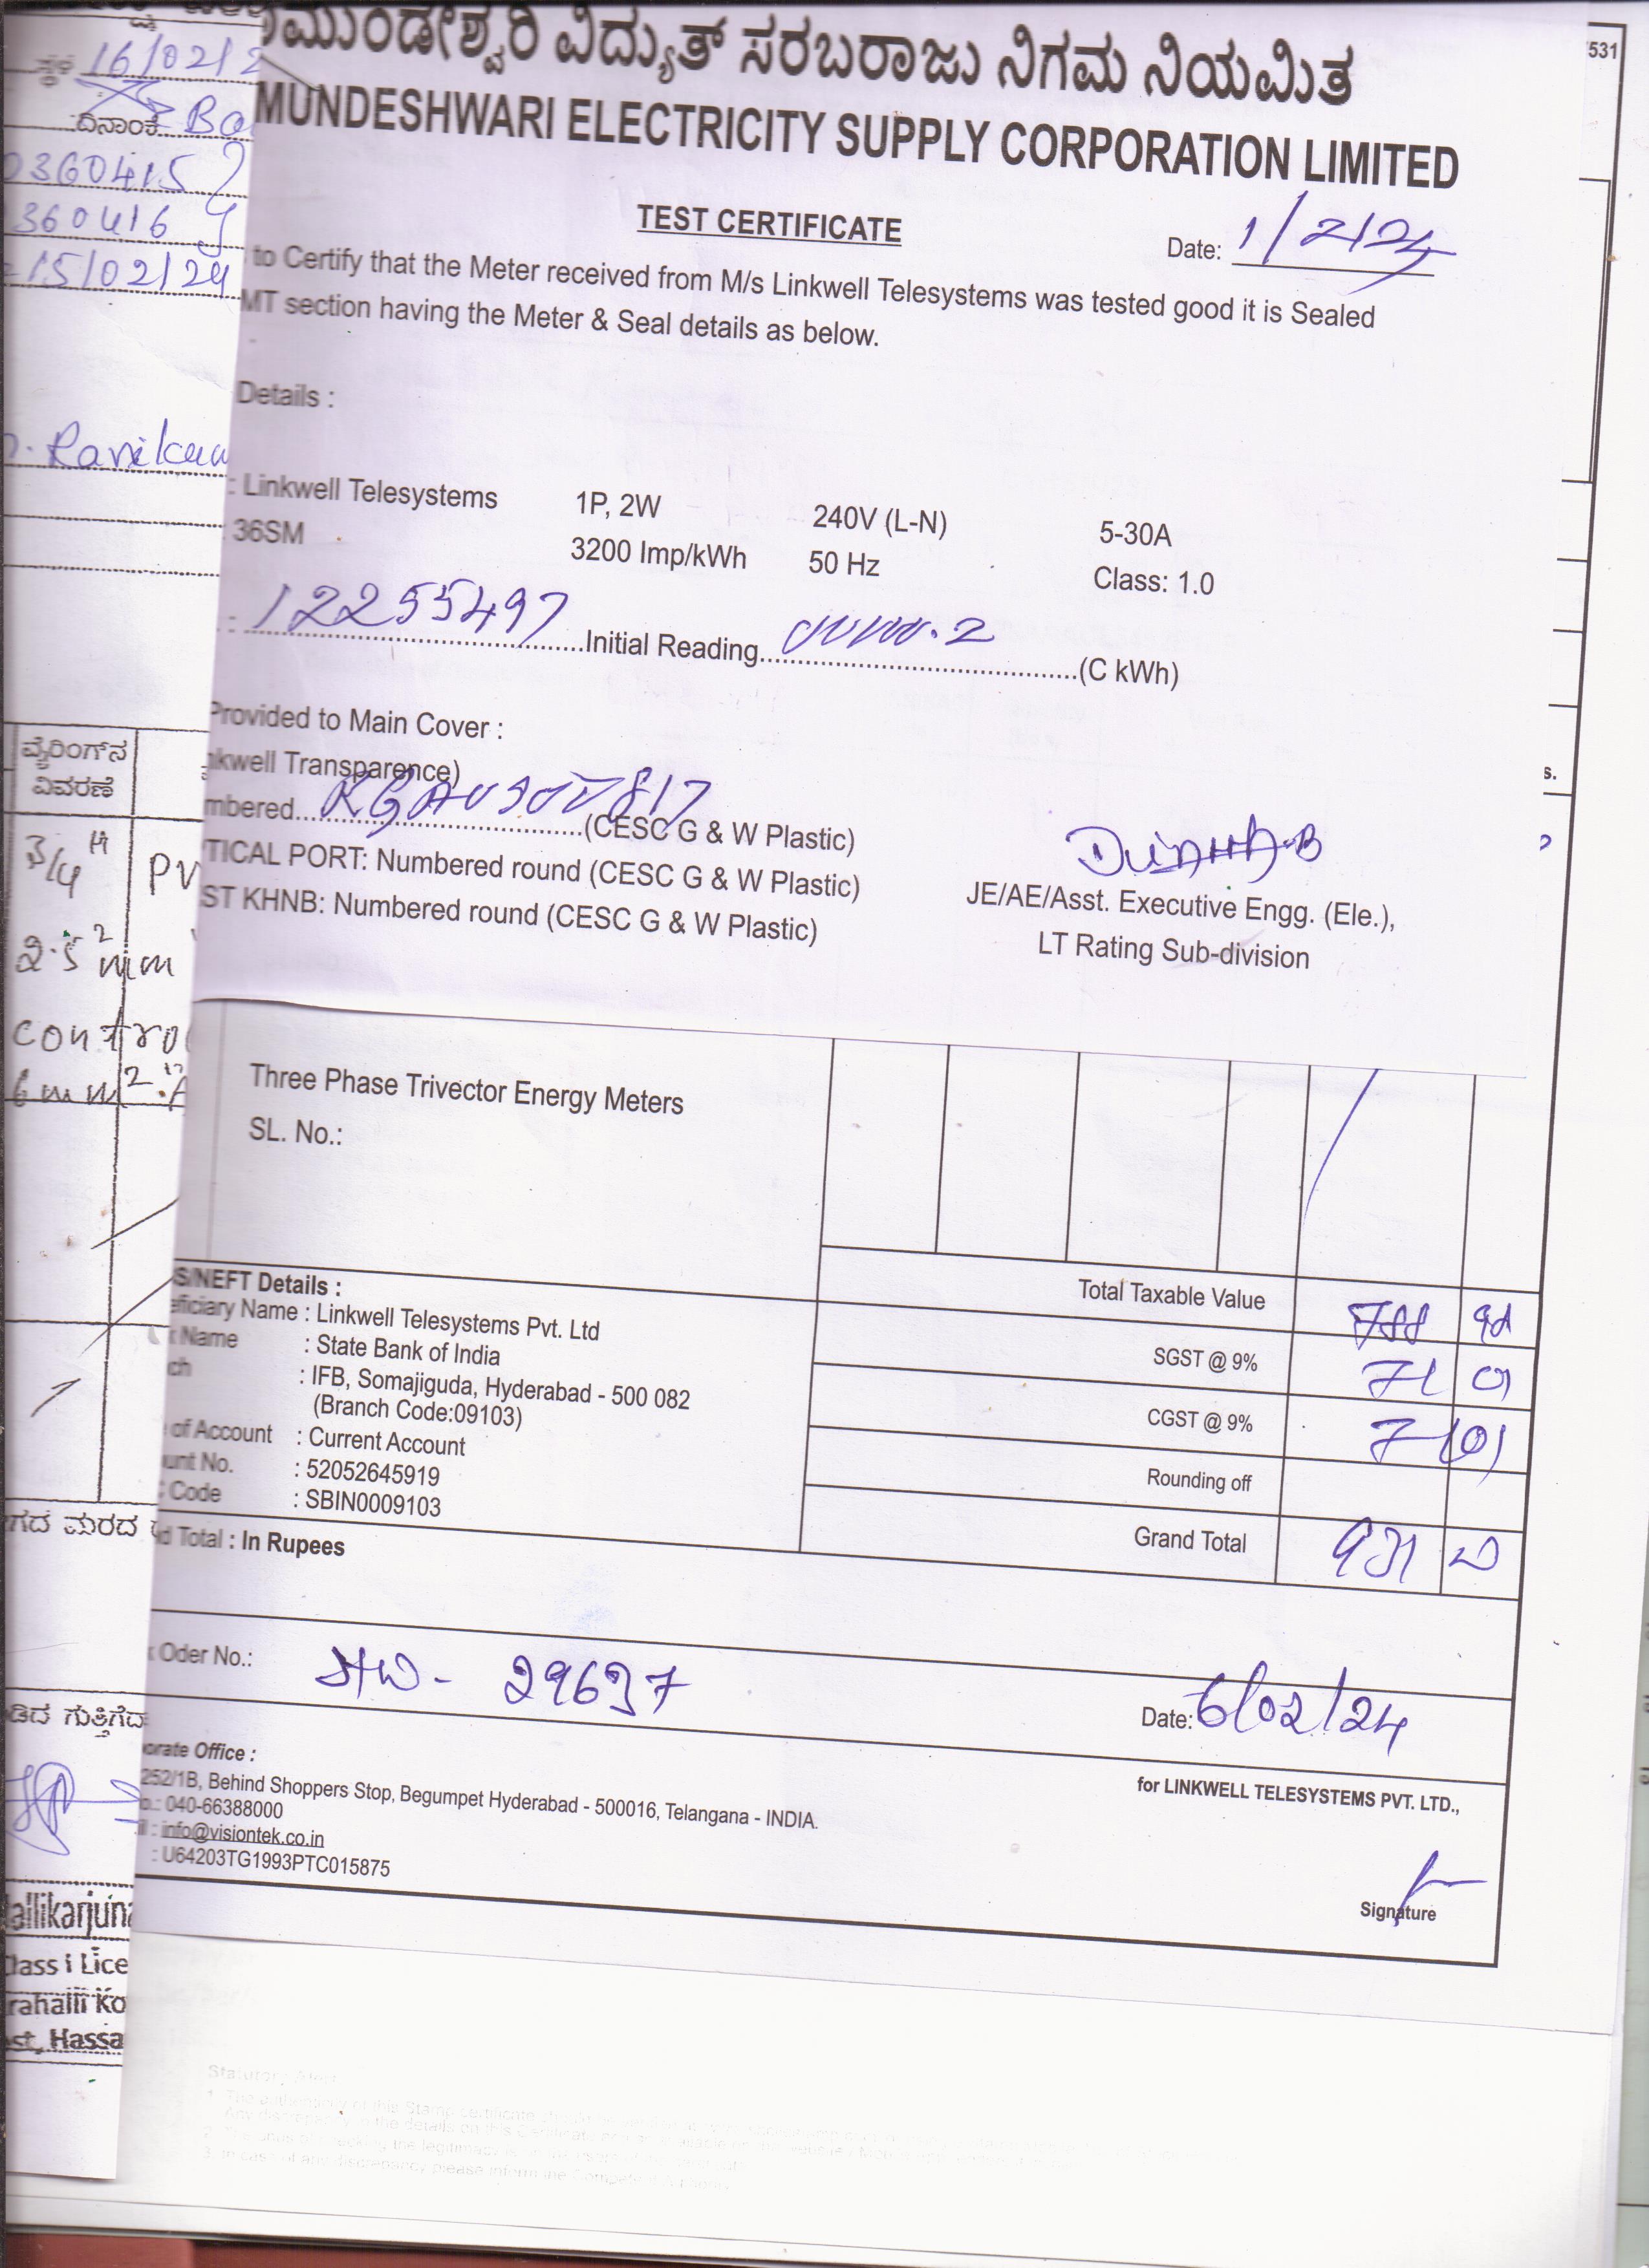 ಮುಂಡೇಶ್ವರಿ ವಿದ್ಯುತ್ ಸರಬರಾಜು ನಿಗಮ ನಿಯಮಿತ
MUNDESHWARI ELECTRICITY SUPPLY CORPORATION LIMITED
TEST CERTIFICATE
Date: 1/2/24
to Certify that the Meter received from M/s Linkwell Telesystems was tested good it is Sealed
MT section having the Meter & Seal details as below.
Details :
: Linkwell Telesystems 1P, 2W 240V (L-N) 5-30A
: 36SM 3200 Imp/kWh 50 Hz Class: 1.0
: 12255497 Initial Reading (C kWh)
Provided to Main Cover :
nkwell Transparence)
mbered (CESC G & W Plastic)
TICAL PORT: Numbered round (CESC G & W Plastic)
ST KHNB: Numbered round (CESC G & W Plastic)
JE/AE/Asst. Executive Engg. (Ele.),
LT Rating Sub-division
Three Phase Trivector Energy Meters
SL. No.:
S/NEFT Details :
eficiary Name : Linkwell Telesystems Pvt. Ltd
k Name : State Bank of India
ch : IFB, Somajiguda, Hyderabad - 500 082
(Branch Code:09103)
of Account : Current Account
unt No. : 52052645919
Code : SBIN0009103
Total Taxable Value
SGST @ 9% 71 01
CGST @ 9% 71 01
Rounding off
Grand Total 931
d Total : In Rupees
Oder No.: 29637
Date: 6/02/24
orate Office :
252/1B, Behind Shoppers Stop, Begumpet Hyderabad - 500016, Telangana - INDIA.
o.: 040-66388000
il : info@visiontek.co.in
: U64203TG1993PTC015875
for LINKWELL TELESYSTEMS PVT. LTD.,
Signature
531
s.
ಸ್ಥಳ 16/02/2
ದಿನಾಂಕ
0360415
360416
15/02/24
Ravikum
ವೈರಿಂಗ್‌ನ
ವಿವರಣೆ
3/4" PV
2.5 mm²
contro
6mm²
ಗದ ಮರದ
ಡಿದ ಗುತ್ತಿಗೆದಾ
allikarjuna
Class I Lice
rahalli Ko
st, Hassa